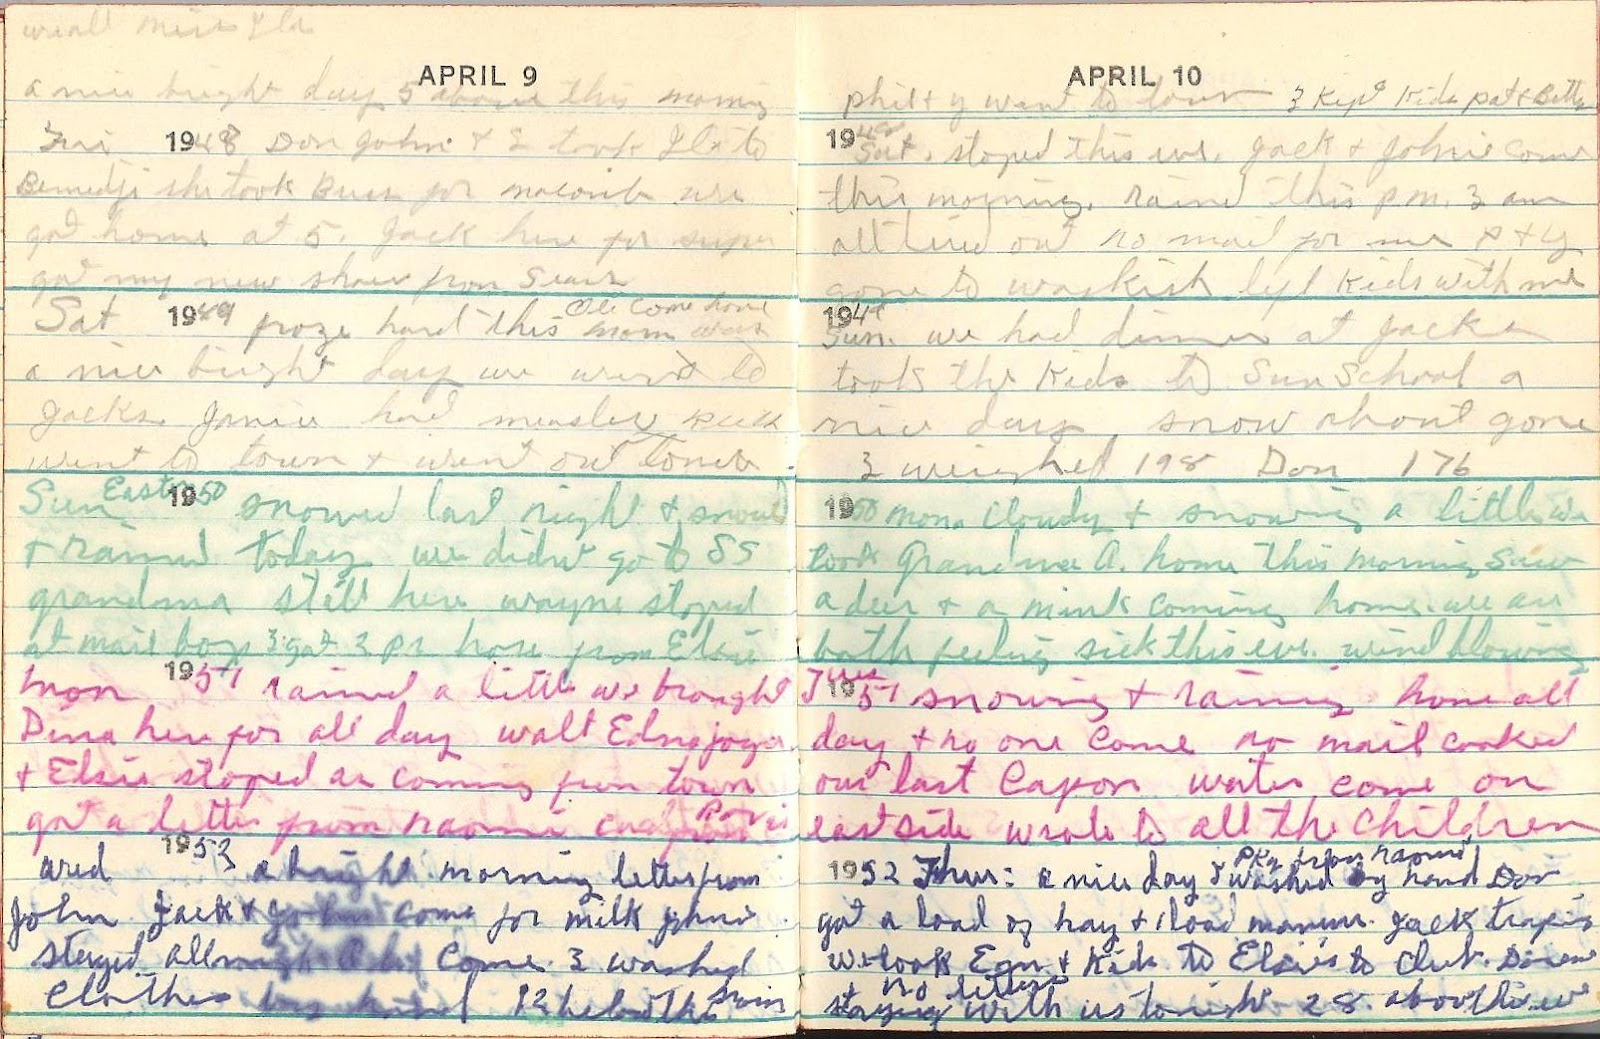 we all miss Ila
APRIL 9
a nice bright day 5 above this morning
Fri 1948 Don Johnie & I took Ila to
Bemedji she took Buss for macomb we
got home at 5. Jack here for super
got my new shoes from Sears
Sat 1949 froze hard this morn was
Ole come home
a nice bright day we went to
Jacks Janice had measles
went to town & went out
Sun Easter 1950 snowed last night & snowed
& rained today we didnt go to SS
grandma still here wayne stoped
at mail box I got 2 pr hose from Elsie
Mon 1951 rained a little we brought
Dena here for all day walt Edna
& Elsie stoped as coming from town
got a letter from naomi card from
wed 1953 a bright morning letter from
John Jack & Jo come for milk Johnie
stayed all come I washed
Clothes by hand 12 below this
APRIL 10
phil & y went to town I kept Kids pat & Betty
1948 Sat. stoped this eve. Jack & Johnie come
this morning. rained this pm. I am
all tired out no mail for me P & Y
gone to waskish left Kids with me
194
Sun. we had dinner at Jacks
took the Kids to Sun School a
nice day, snow about gone
I weighed 198 Don 176
1950 mon. Cloudy & snowing a little we
took Grandma A. home this morning saw
a deer & a mink coming home. we are
both feeling sick this eve. wind blowing
Tues 1951 snowing & raining home all
day & no one come no mail cooked
our last Capon water come on
east side wrote to all the Children
pkg from naomi
1952 Thur: a nice day I washed by hand Don
got a load of hay & 1 load manure. Jack
we took & Kids to Elsie's to Club.
& no letters
staying with us tonight 28 above this eve